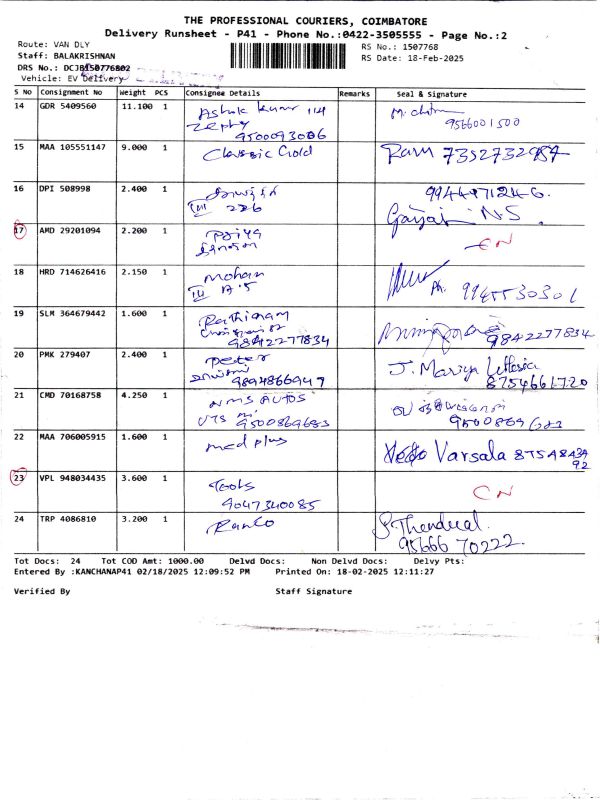 THE PROFESSIONAL COURIERS, COIMBATORE
Delivery Runsheet - P41 - Phone No.:0422-3505555 - Page No.:2
Route: VAN DLY
Staff: BALAKRISHNAN
DRS No.: DCJB150776802
Vehicle: EV Delivery
RS No.: 1507768
RS Date: 18-Feb-2025
S No Consignment No Weight PCS Consignee Details Remarks Seal & Signature
14 GDR 5409560 11.100 1 Ashok kumar 114 M.
Zephy 9566001500
9500093006
15 MAA 105551147 9.000 1 Classic Gold Ram 7352732984
16 DPI 508998 2.400 1 9944971246.
III 226 N.S.
17 AMD 29201094 2.200 1 Priya CN
18 HRD 714626416 2.150 1 Mohan
III A.5 Ph. 9945530301
19 SLM 364679442 1.600 1 Rathinam
9842277834 9842277834
20 PMK 279407 2.400 1 Peter J. Mariya
9894866947 8754661720
21 CMD 70168758 4.250 1 NMS AUTOS
9500869683 9500869683
22 MAA 706005915 1.600 1 med plus Varsala 87548439
92
23 VPL 948034435 3.600 1 Tools CN
9047340085
24 TRP 4086810 3.200 1 Ranco
95666 70222.
Tot Docs: 24 Tot COD Amt: 1000.00 Delvd Docs: Non Delvd Docs: Delvy Pts:
Entered By :KANCHANAP41 02/18/2025 12:09:52 PM Printed On: 18-02-2025 12:11:27
Verified By Staff Signature